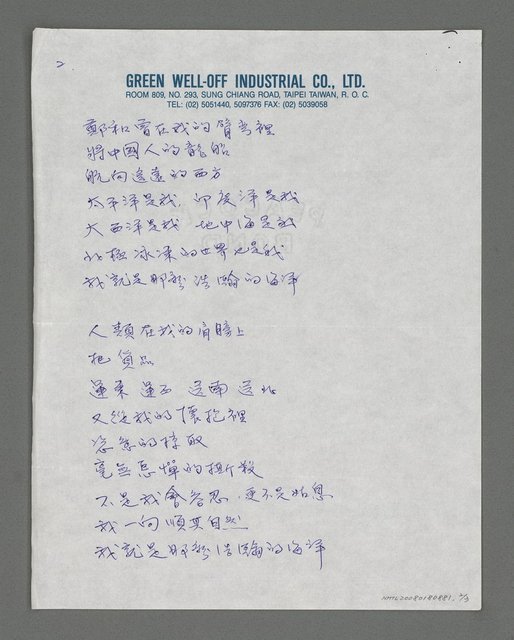 GREEN WELL-OFF INDUSTRIAL CO., LTD.
ROOM 809, NO. 293, SUNG CHIANG ROAD, TAIPEI TAIWAN, R. O. C.
TEL: (02) 5051440, 5097376 FAX: (02) 5039058
鄭和曾在我的臂彎裡
將中國人的龍船
航向遙遠的西方
太平洋是我，印度洋是我
大西洋是我 地中海是我
北極冰凍的世界也是我
我就是那新浩瀚的海洋
人類在我的肩膀上
把貨品
運東 運西 送南 送北
又從我的懷抱裡
恣意的撈取
毫無忌憚的撕殺
不是我會容忍，更不是姑息
我一向順其自然
我就是那新浩瀚的海洋
NMTL20080180881, 2/3